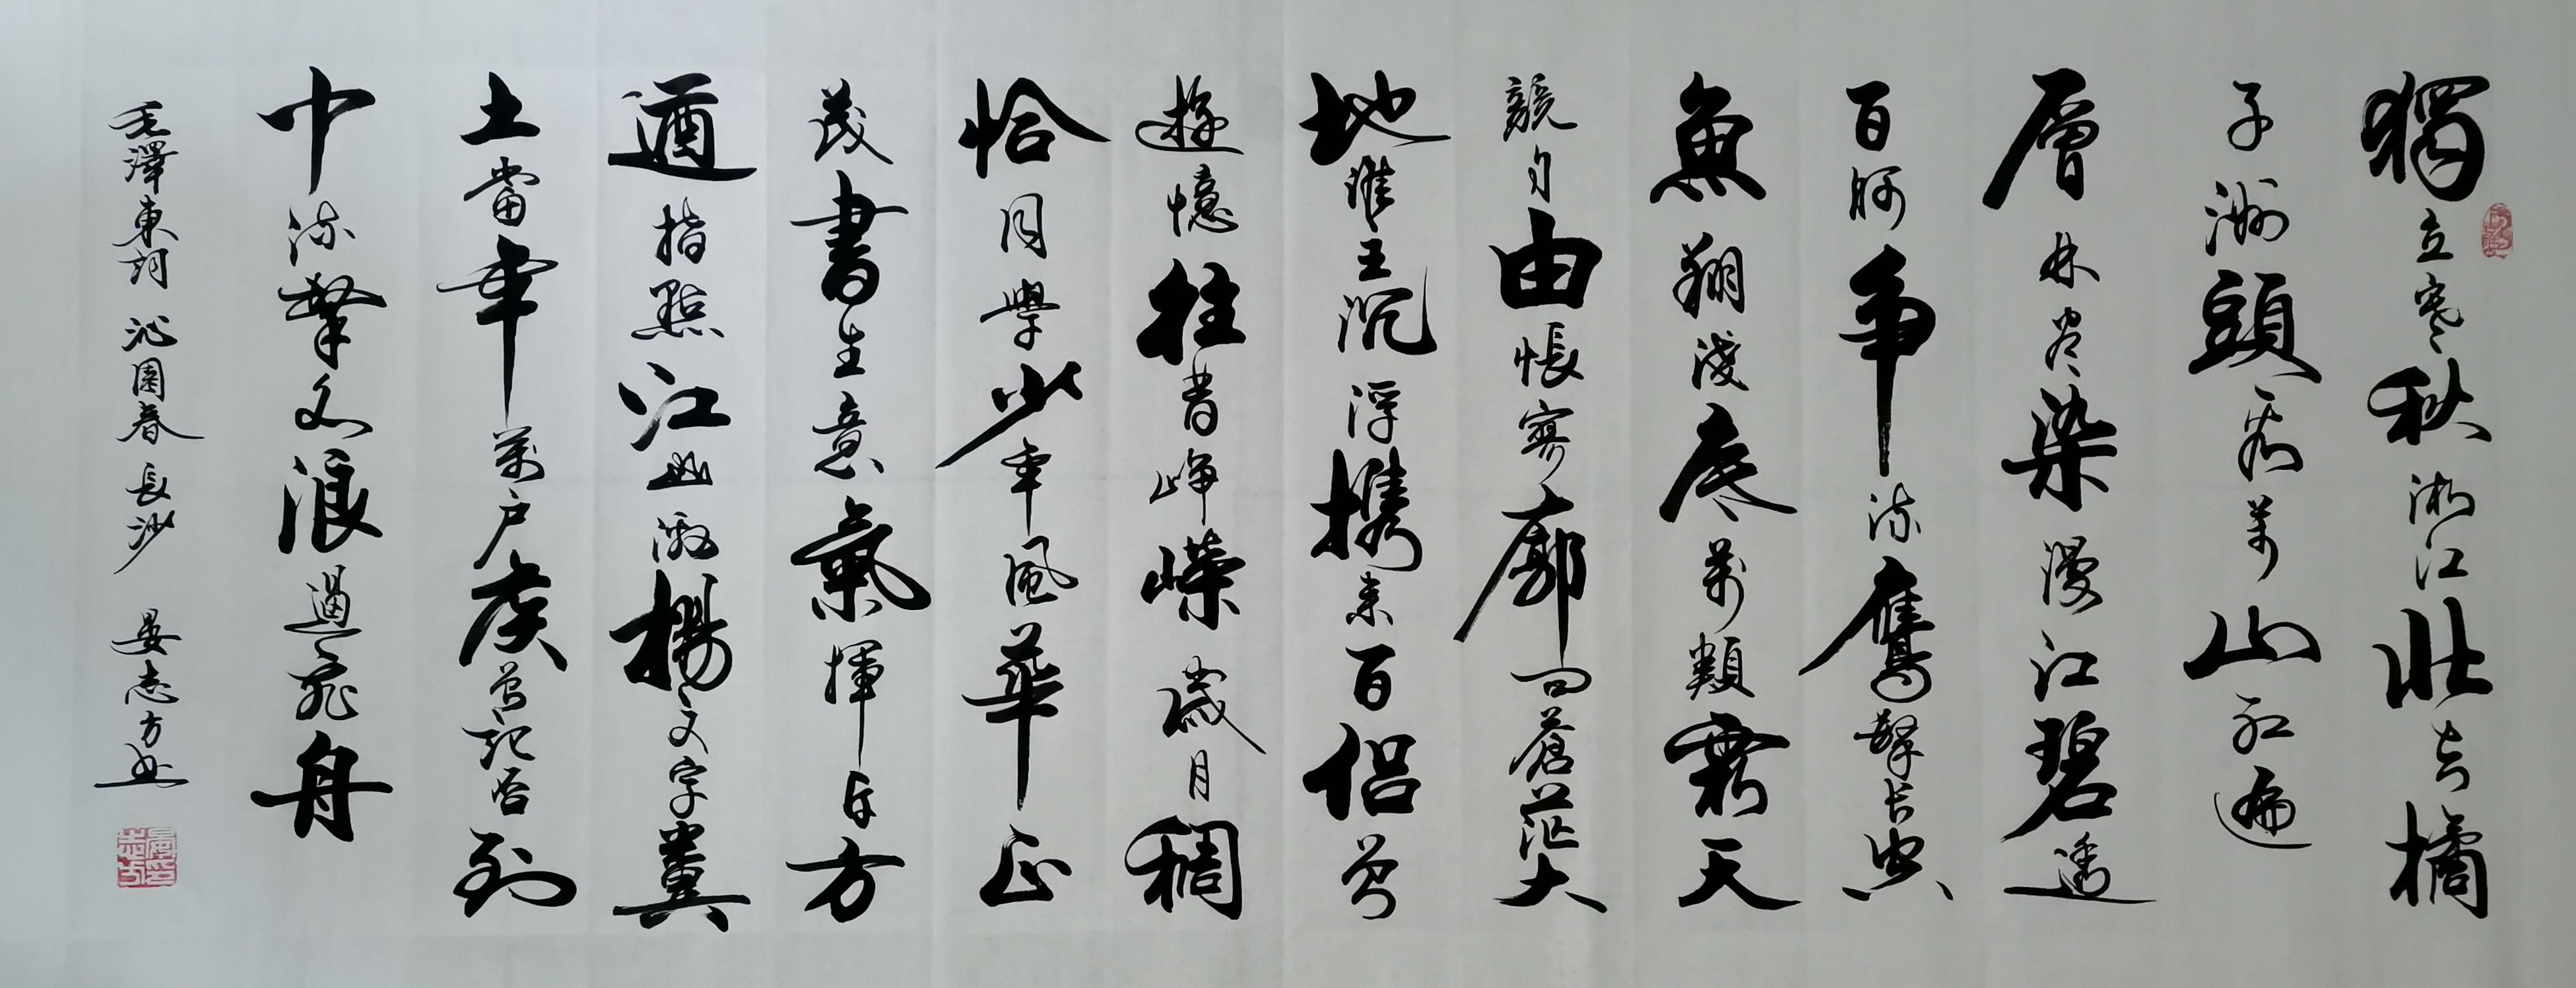 獨立寒秋湘江北去橘
子洲頭看萬山紅遍
層林尽染漫江碧透
百舸争流鷹擊长空
魚翔淺底萬類霜天
競自由悵寥廓问蒼茫大
地誰主沉浮携来百侣曾
遊憶往昔崢嶸歲月稠
恰同學少年風華正
茂書生意氣揮斥方
遒指點江山激揚文字糞
土當年萬户侯曾記否到
中流擊水浪遏飛舟
毛澤東詞 沁園春 長沙 晏志方书